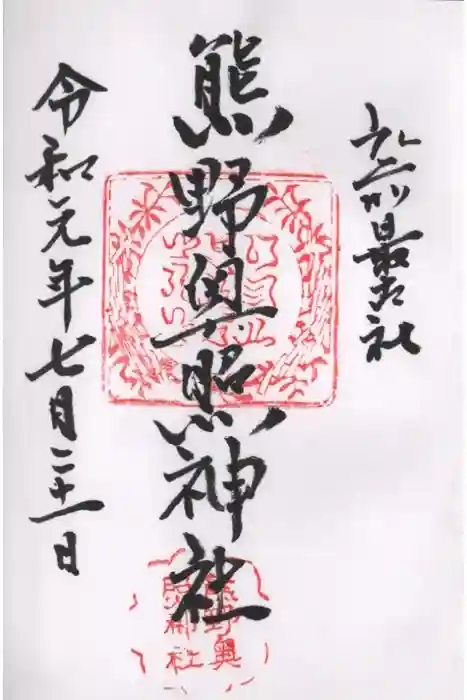 弘前最古社
熊野奥照神社
令和元年七月二十一日
熊野奥
照神社